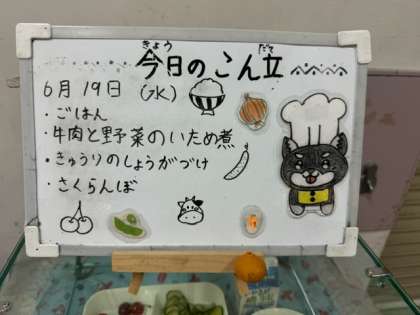 今日のこん立
6月19日 (水)
・ごはん
・牛肉と野菜のいため煮
・きゅうりのしょうがづけ
・さくらんぼ